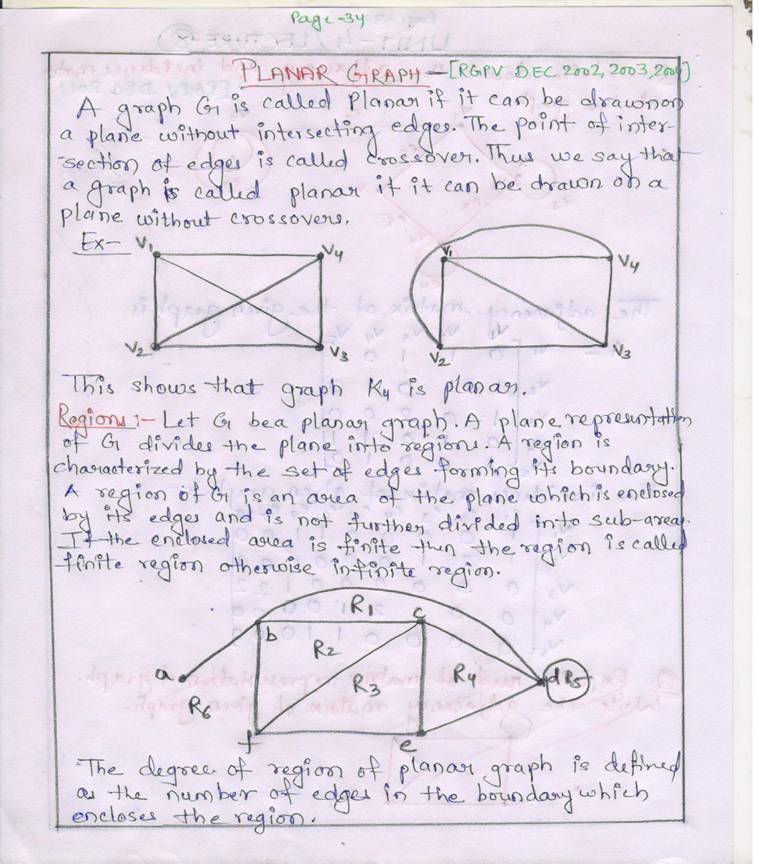 Page-34
PLANAR GRAPH - [RGPV DEC 2002, 2003,
A graph G is called Planar if it can be drawn on
a plane without intersecting edges. The point of inter-
-section of edges is called crossover. Thus we say that
a graph is called planar if it can be drawn on a
plane without crossovers.
Ex-
V1 V4
V2 V3
V1 V4
V2 V3
This shows that graph K4 is planar.
Regions :- Let G be a planar graph. A plane representation
of G divides the plane into regions. A region is
characterized by the set of edges forming its boundary.
A region of G is an area of the plane which is enclosed
by its edges and is not further divided into sub-areas.
If the enclosed area is finite then the region is called
finite region otherwise infinite region.
R1
b c
R2
a R3 R4 d R5
R6
f e
The degree of region of planar graph is defined
as the number of edges in the boundary which
encloses the region.